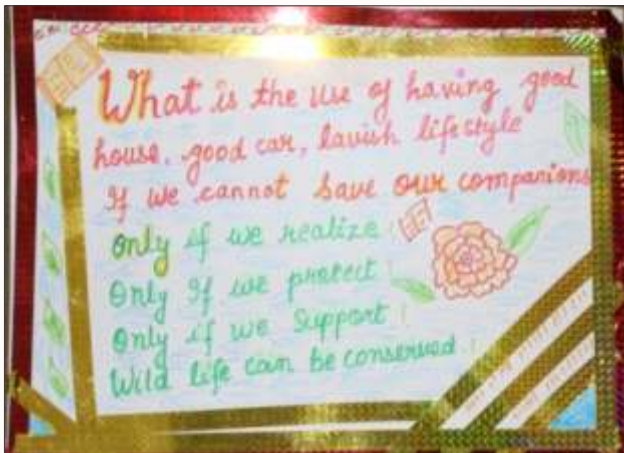 What is the use of having good
house, good car, lavish lifestyle
If we cannot save our companions
Only if we realize !
Only If we protect !
Only if we Support !
Wild life can be conserved !